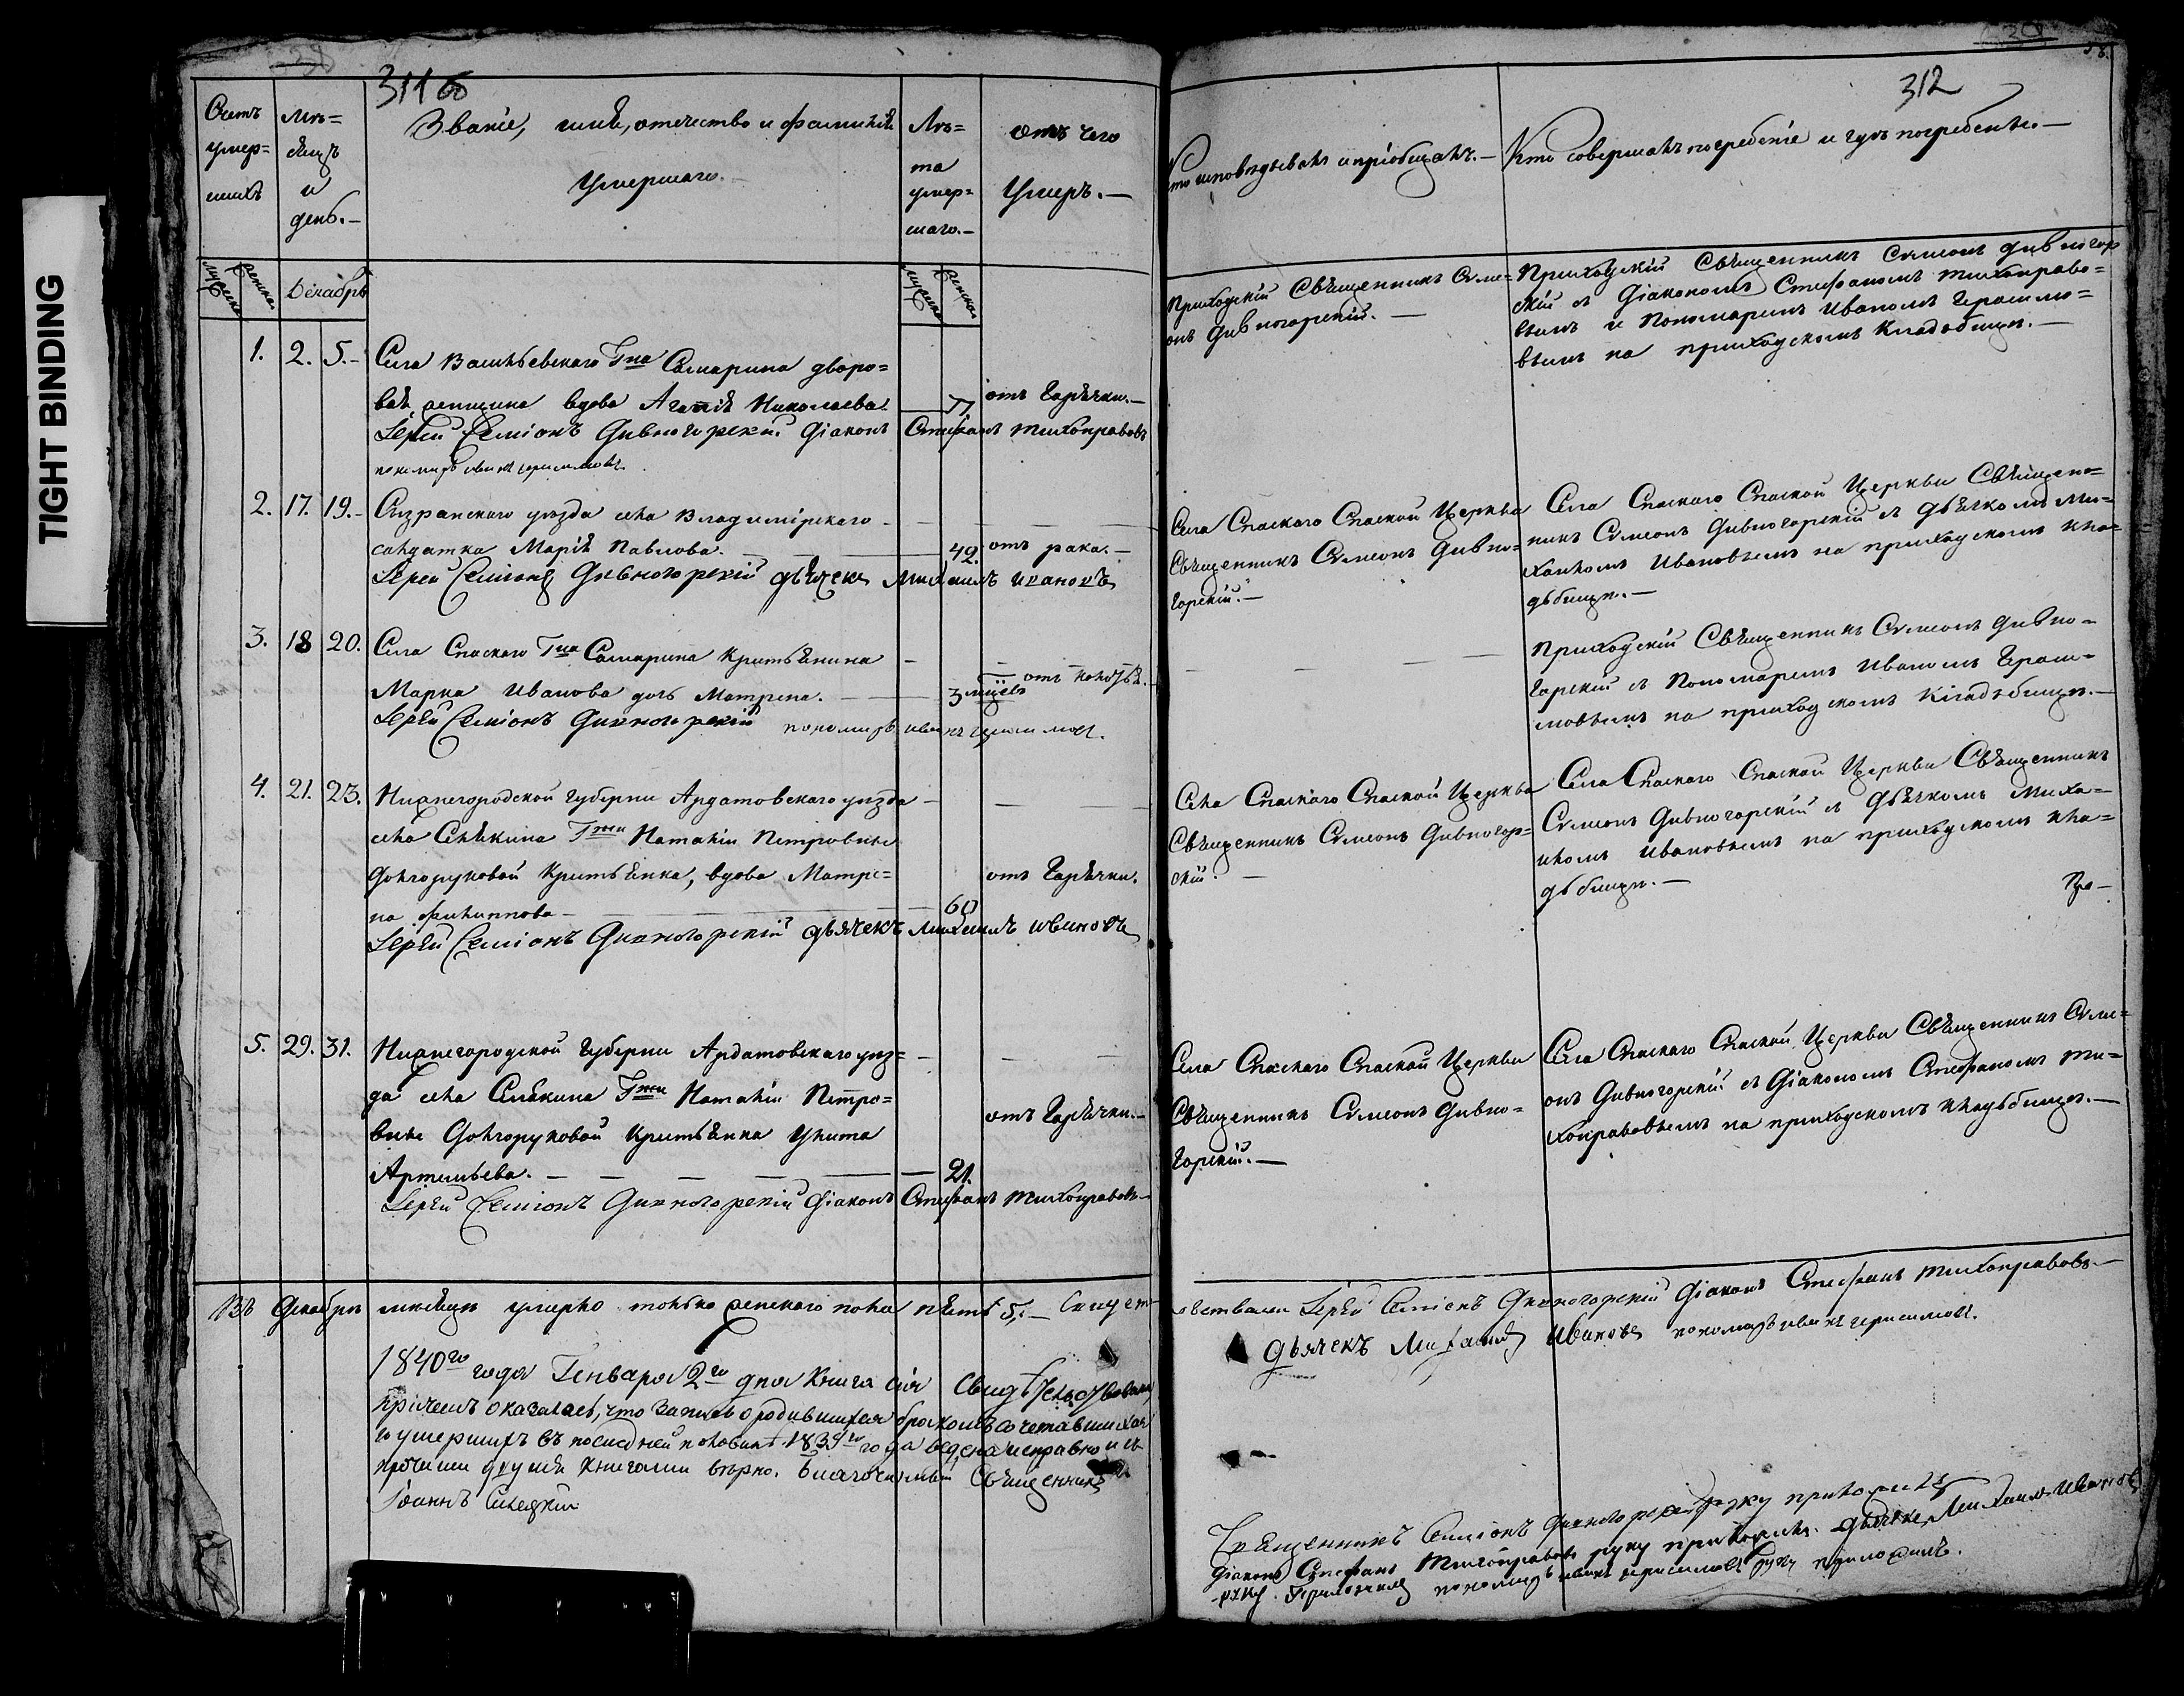 311 об
312
Счетъ умер=шихъ
мѣ=сяцъ и день.—
Званіе, имя, отечество и фамилія Умершаго.
Лѣ=та умер=шаго.—
отъ чего Умеръ.—
Кто исповѣдывалъ и пріобщалъ.—
Кто совершалъ погребеніе и гдѣ погребены.—
Декабрь
1. 2. 5.—
Села Васильевскаго Гна Самарина дворо=
вая женщина вдова Агапія Николаева
отъ Горячки.—
Іерей Симіонъ Дивногорскій Діаконъ Стефанъ Тихонравовъ
пономарь иванъ герасимовъ.
Приходскій Священникъ Симе=
онъ Дивногорскій.—
Приходскій Священникъ Симеонъ Дивногор
скій съ Діакономъ Стефаномъ Тихонраво=
вымъ и Пономаремъ Иваномъ Гераси
вымъ на приходскомъ Кладбищѣ.—
2. 17. 19.—
Сызранскаго уѣзда села Владимірскаго
салдатка Марія Павлова. 49. отъ рака.—
Іерей Симіонъ Дивногорскій дьячекъ Михаилъ Ивановъ
Села Спаскаго Спаской Церкви
Священникъ Симеонъ Дивно=
горскій.—
Села Спаскаго Спаской Церкви Священ=
никъ Симеонъ Дивногорскій съ Дьячкомъ Ми=
хаиломъ Ивановымъ на приходскомъ кла=
дбищѣ.—
3. 18 20.
Села Спаскаго Гна Самарина Крестьянина
Марка Иванова дочь Матрена. 3 мѣсяцевъ
Іерей Симіонъ Дивногорскій пономарь иванъ герасимовъ.
Приходскій Священникъ Симеонъ Дивно=
горскій съ Пономаремъ Иваномъ Гераси=
мовымъ на приходскомъ Кладбищѣ.—
4. 21. 23.
Нижегородской Губерніи Ардатовскаго уѣзда
села Гжи Наталіи Петровны
Долгоруковой Крестьянка, вдова Матре=
на Филиппова 60 отъ Горячки.
Іерей Симіонъ Дивногорскій дьячекъ Михаилъ Ивановъ
Села Спаскаго Спаской Церкви
Священникъ Симеонъ Дивногор=
скій.—
Села Спаскаго Спаской Церкви Священникъ
Симеонъ Дивногорскій съ Дьячкомъ Миха=
иломъ Ивановымъ на приходскомъ кла=
дбищѣ.—
5. 29. 31.
Нижегородской Губерніи Ардатовскаго уѣз=
да села Гжи Наталіи Петро=
вны Долгоруковой Крестьянка Улита
Артемьева. 21. отъ Горячки.—
Іерей Симіонъ Дивногорскій Діаконъ Стефанъ Тихонравовъ
Села Спаскаго Спаской Церкви
Священникъ Симеонъ Дивно=
горскій.—
Села Спаскаго Спаской Церкви Священникъ Симе=
онъ Дивногорскій съ Діакономъ Стефаномъ Ти=
хонравовымъ на приходскомъ кладбищѣ.—
Въ Декабрѣ мѣсяцѣ умерло только женскаго пола пять 5.— Свидѣтельствовали Іерей Симіонъ Дивногорскій Діаконъ Стефанъ Тихонравовъ
дьячекъ Михаилъ Ивановъ пономарь иванъ герасимовъ.
1840го года Генваря 2го дня Книга сія свидѣтельствована,
причемъ оказалась, что запись о родившихся бракомъ сочетавшихся
и умершихъ въ последней половинѣ 1839го года ведена исправно и съ
прочими двумя Книгами вѣрно. Благочинный Священникъ
Іоаннъ
Священникъ Симіонъ Дивногорскій руку приложилъ
Діаконъ Стефанъ Тихонравовъ руку приложилъ. дьячекъ Михаилъ Ивановъ
руку приложилъ пономарь иванъ герасимовъ руку приложилъ.
TIGHT BINDING